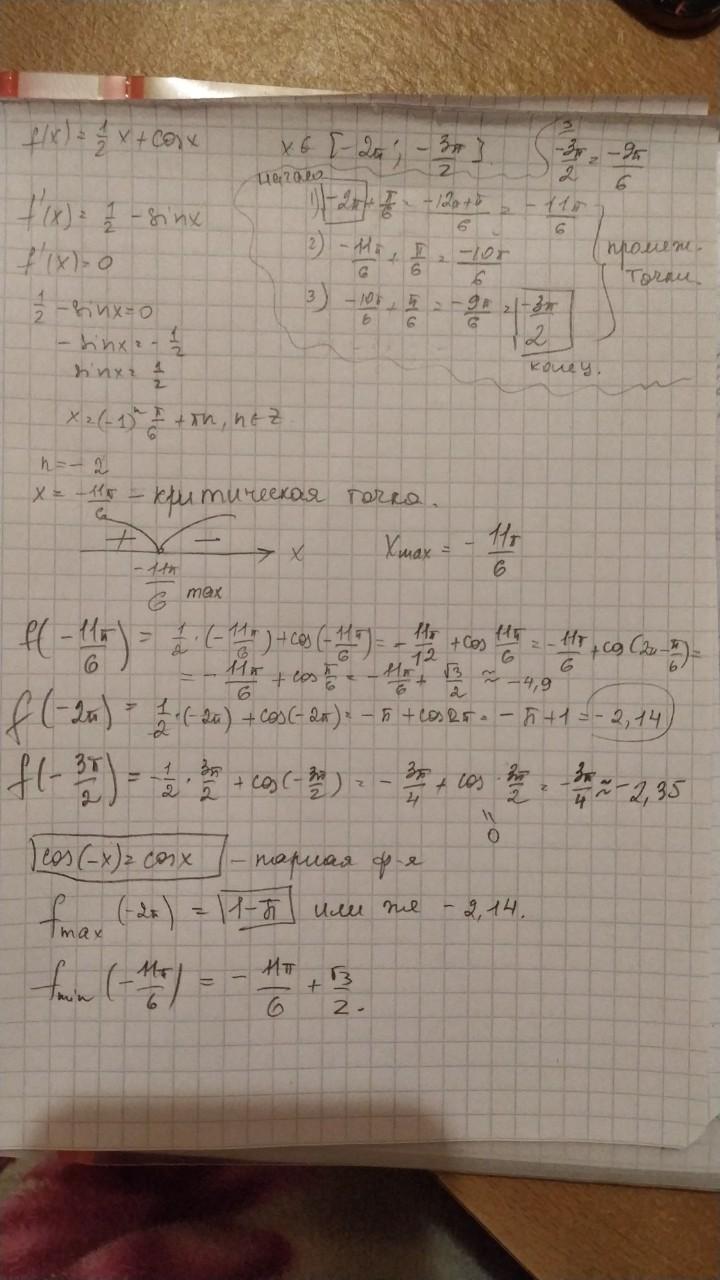 f(x) = 1/2 x + cosx
x ∈ [-2π; -3π/2]
3
-3π/2 = -9π/6
начало
1) -2π + π/6 = -12π+π/6 = -11π/6
2) -11π/6 + π/6 = -10π/6
3) -10π/6 + π/6 = -9π/6 = -3π/2
конец.
промеж.
точки.
f'(x) = 1/2 - sinx
f'(x) = 0
1/2 - sinx = 0
- sinx = - 1/2
sinx = 1/2
x = (-1)^n π/6 + πn, n ∈ Z
n = - 2
x = -11π/6 - критическая точка.
+ - x
-11π/6 max
Xmax = - 11π/6
f(-11π/6) = 1/2 · (-11π/6) + cos(-11π/6) = - 11π/12 + cos 11π/6 = -11π/6 + cos(2π - π/6) =
= - 11π/6 + cos π/6 = - 11π/6 + √3/2 ≈ -4,9
f(-2π) = 1/2 · (-2π) + cos(-2π) = - π + cos2π = - π + 1 = -2,14
f(-3π/2) = -1/2 · 3π/2 + cos(-3π/2) = - 3π/4 + cos · 3π/2 = -3π/4 ≈ -2,35
=
0
cos(-x) = cosx - парная ф-я
fmax (-2π) = 1-π или же - 2,14.
fmin (-11π/6) = - 11π/6 + √3/2.